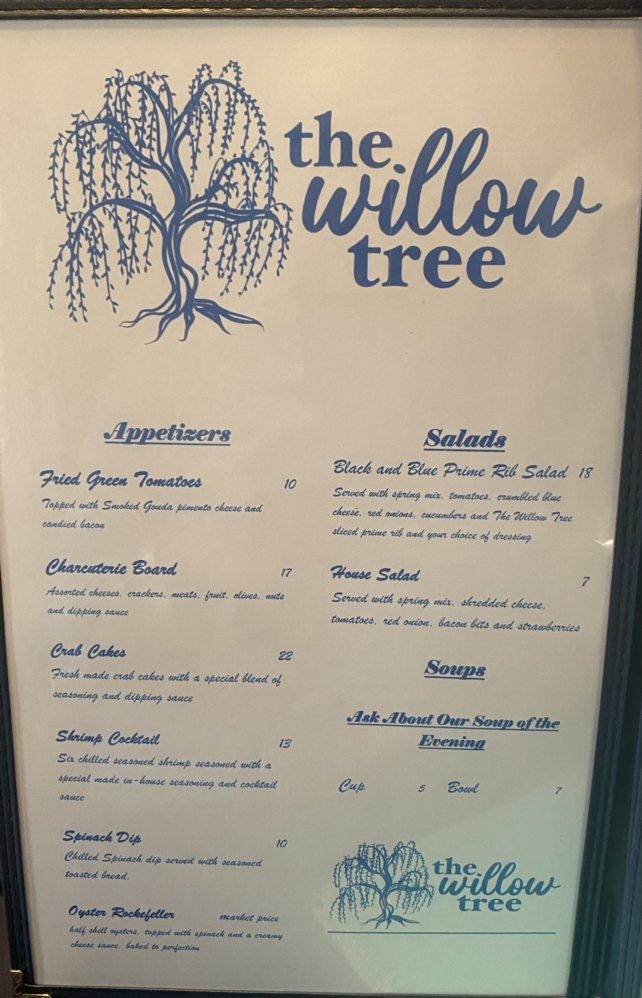 the
willow
tree
Appetizers
Fried Green Tomatoes 10
Topped with Smoked Gouda pimento cheese and
candied bacon
Charcuterie Board 17
Assorted cheeses, crackers, meats, fruit, olives, nuts
and dipping sauce
Crab Cakes 22
Fresh made crab cakes with a special blend of
seasoning and dipping sauce
Shrimp Cocktail 13
Six chilled seasoned shrimp seasoned with a
special made in-house seasoning and cocktail
sauce
Spinach Dip 10
Chilled Spinach dip served with seasoned
toasted bread.
Oyster Rockefeller market price
half shell oysters, topped with spinach and a creamy
cheese sauce, baked to perfection
Salads
Black and Blue Prime Rib Salad 18
Served with spring mix, tomatoes, crumbled blue
cheese, red onions, cucumbers and The Willow Tree
sliced prime rib and your choice of dressing
House Salad 7
Served with spring mix, shredded cheese,
tomatoes, red onion, bacon bits and strawberries
Soups
Ask About Our Soup of the
Evening
Cup 5 Bowl 7
the
willow
tree